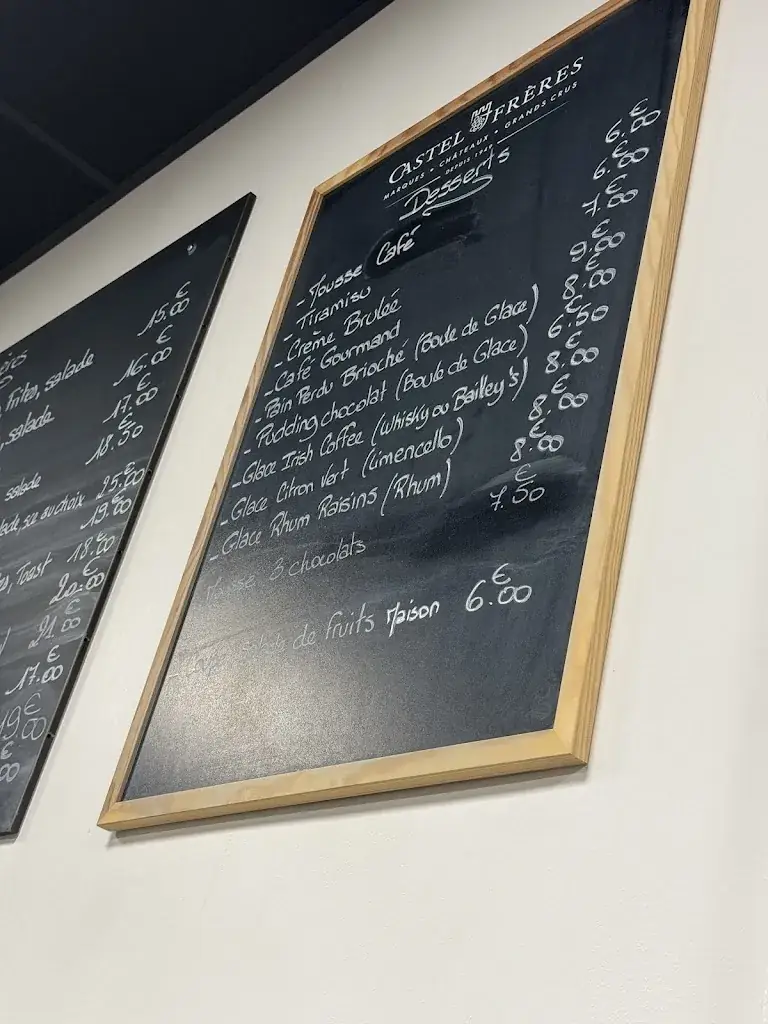 ères
Frites, salade 15.€00
salade 16.€00
17.€00
salade 18.€50
salade, sce au choix 25.€00
19.€00
Toast 18.€00
20.€00
21.€00
17.€00
19€00
€00
CASTEL FRÈRES
MARQUES • CHÂTEAUX • GRANDS CRUS
DEPUIS 1949
Desserts
- Mousse Café 6.€00
- Tiramisu 6.€00
- Crème Bruleé 7.€00
- Café Gourmand 9.€00
- Pain Perdu Brioché (Boule de Glace) 8.€00
- Pudding chocolat (Boule de Glace) 6.€50
- Glace Irish Coffee (Whisky ou Bailey's) 8.€00
- Glace Citron Vert (Limencello) 8.€00
- Glace Rhum Raisins (Rhum) 8.€00
3 chocolats 7.€50
de fruits Maison 6.€00